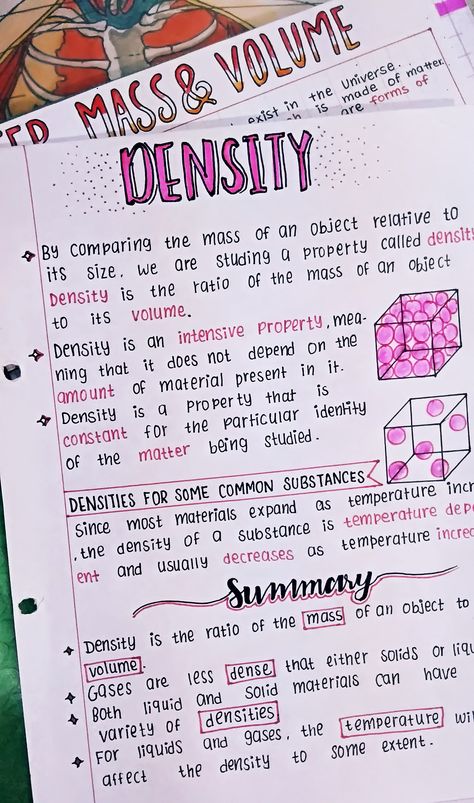 MASS & VOLUME
exist in the Universe.
is made of matter.
are forms of
DENSITY
By comparing the mass of an object relative to
its size, we are studing a property called density
Density is the ratio of the mass of an object
to its volume.
Density is an intensive property, mea-
ning that it does not depend on the
amount of material present in it.
Density is a property that is
constant for the particular identity
of the matter being studied.
DENSITIES FOR SOME COMMON SUBSTANCES
Since most materials expand as temperature incr
, the density of a substance is temperature depe
ent and usually decreases as temperature increa
Summary
Density is the ratio of the mass of an object to
volume.
Gases are less dense that either solids or liqu
Both liquid and solid materials can have
variety of densities
For liquids and gases, the temperature wil
affect the density to some extent.